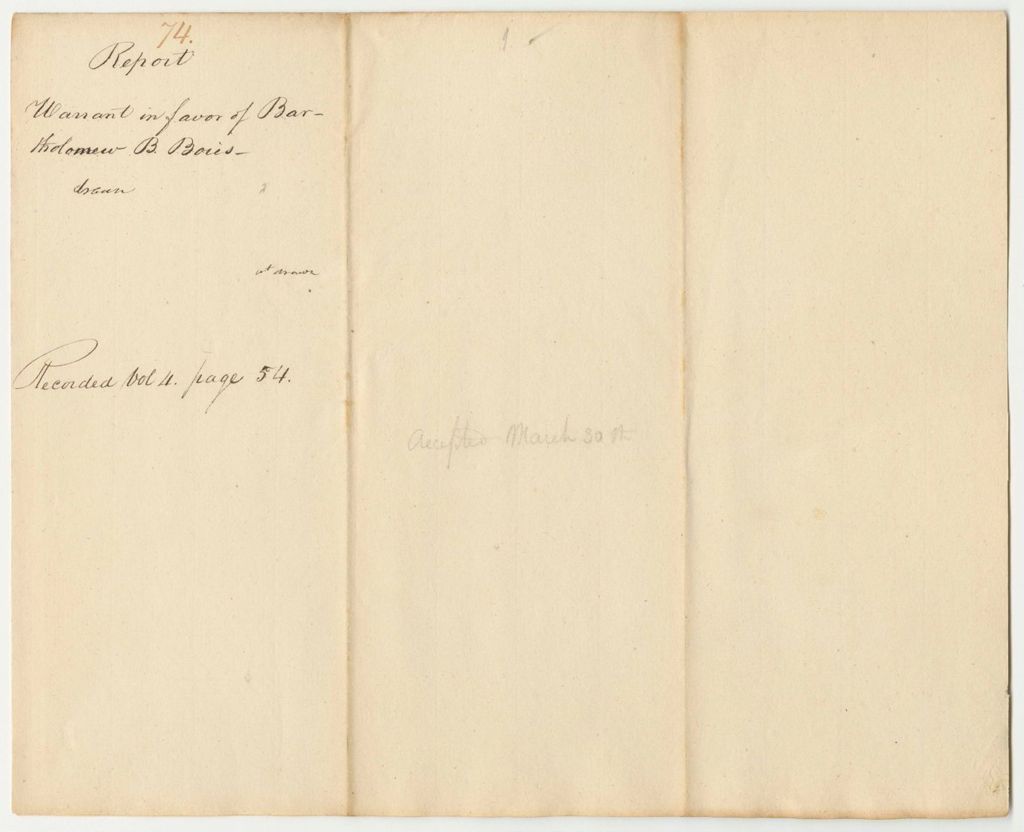 74.
Report
Warrant in favor of Bar-
tholomew B. Boies-
drawn
Recorded Vol 4. page 54.
Accepted March 30th